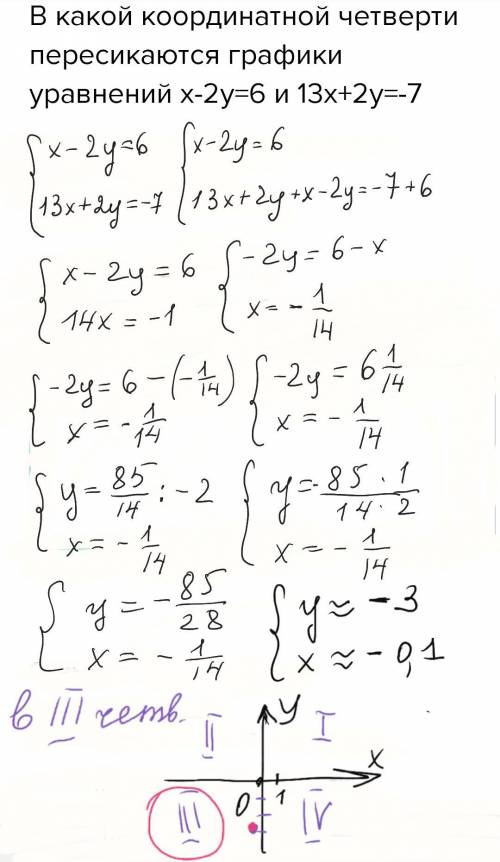 В какой координатной четверти
пересикаются графики
уравнений x-2y=6 и 13x+2y=-7
{ x - 2y = 6 { x - 2y = 6
{ 13x + 2y = -7 { 13x + 2y + x - 2y = -7 + 6
{ x - 2y = 6 { -2y = 6 - x
{ 14x = -1 { x = - 1/14
{ -2y = 6 - (- 1/14) { -2y = 6 1/14
{ x = - 1/14 { x = - 1/14
{ y = 85/14 : -2 { y = - 85 · 1/14 · 2
{ x = - 1/14 { x = - 1/14
{ y = - 85/28 { y ≈ -3
{ x = - 1/14 { x ≈ -0,1
в III четв.
y
II I
x
0 1
III IV